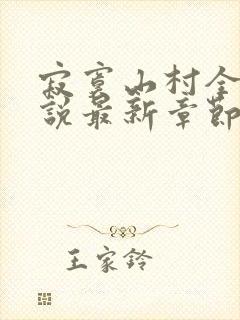 寂寞山村全
說最新章節
王家鈴